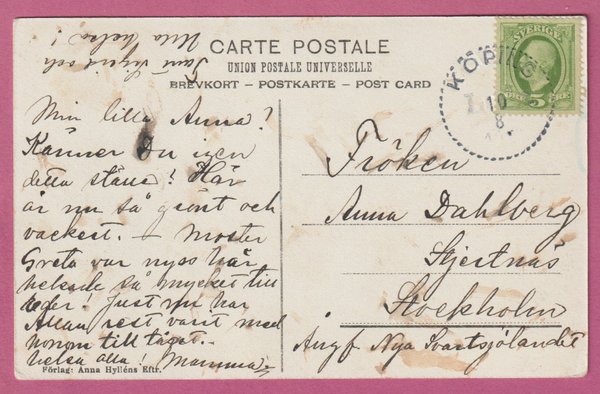 Tant Sigrid och
Uta helsa!
CARTE POSTALE
UNION POSTALE UNIVERSELLE
BREVKORT – POSTKARTE – POST CARD
Min lilla Anna!
Känner Du igen
detta ställe? Här
är nu så grönt och
vackert. – Moster
Greta var nyss här
helsade så mycket till
eder! Just nu har
Allan rest varit med
honom till tåget.
helsa alla! Mamma.
Förlag: Anna Hylléns Eftr.
SVERIGE
5
KÖPING
10
8
Fröken
Anna Dahlberg
Stjertnäs
Stockholm
Ångf. Nya Svartsjölandet